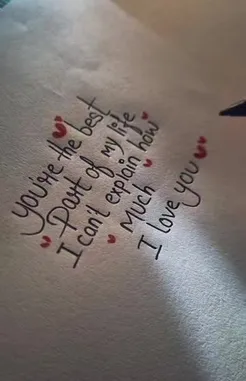 you're the best
Part of my life
I can't explain how
Much
I love you